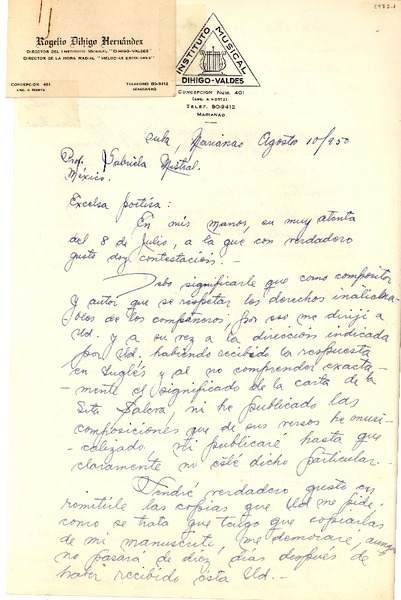 2982-1
Rogelio Dihigo Hernández
DIRECTOR DEL INSTITUTO MUSICAL "DIHIGO-VALDES"
DIRECTOR DE LA HORA RADIAL "MELODIAS ESCOLARES"
CONCEPCION 401
ENG. A NORTE
TELEFONO B0-9412
MARIANAO
INSTITUTO MUSICAL
DIHIGO-VALDES
CONCEPCION NUM. 401
(ENG. A NORTE)
TELEF. B0-9412
MARIANAO
Cuba, Marianao Agosto 10/950
Prof. Gabriela Mistral.
México.
Excelsa poetisa:
En mis manos, su muy atenta
del 8 de Julio, a la que con verdadero
gusto doy contestación.-
Debo significarle que como compositor
y autor que se respetar los derechos inaliena-
bles de los compañeros, por eso me dirijí a
Ud. y a su vez a la dirección indicada
por Ud. habiendo recibido la respuesta
en Inglés y al no comprender exacta-
-mente el significado de la carta de la
Srta Dalera, ni he publicado las
composiciones que de sus versos he musi-
-calizado, ni publicaré hasta que
claramente no esté dicho particular.-
Tendré verdadero gusto en
remitirle las copias que Ud me pide,
como se trata que tengo que copiarlas
de mi manuscrito, me demoraré, aunque
no pasará de diez días después de
haber recibido ésta Ud.-